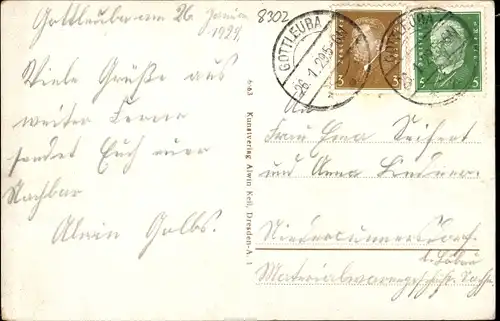 Gottleuba am 26. Januar
1929.
8302
Viele Grüße aus
weiter Ferne
sendet Euch euer
Nachbar
Alwin Golbs.
6-63 Kunstverlag Alwin Keil, Dresden-A. 1
GOTTLEUBA
26.1.29.5-6
3 3
GOTTLEUBA
5 5
An
Frau Seifert
und Anna Lindner
Niedercunnersdorf
b. Löbau
Materialwarengeschäft. Sachs.